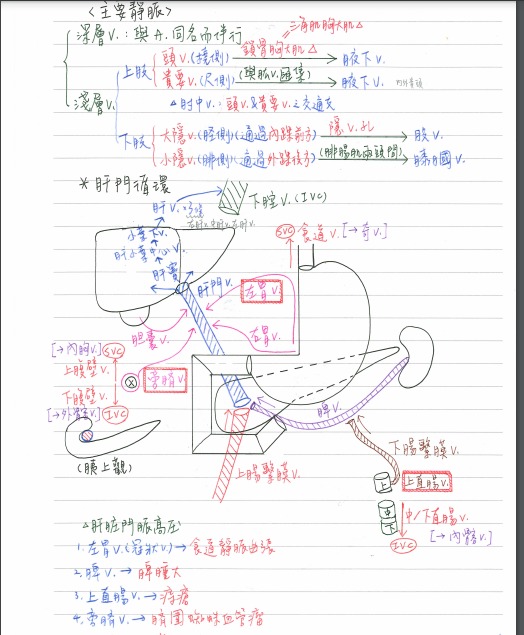 <主要靜脈>
深層V.：與A.同名而伴行
淺層V.
上肢
頭V.(橈側) 鎖骨胸大肌△ → 腋下V.
三角肌胸大肌△
貴要V.(尺側) (與肱V.匯集) → 腋下V.
△肘中V.：頭V.&貴要V.之交通支
下肢
大隱V.(脛側)(通過內踝前子) 隱V.孔 → 股V.
小隱V.(腓側)(通過外踝後子) (腓腸肌兩頭間) → 膕V.
*肝門循環
肝V.
下腔V.(IVC)
小葉下V.
肝小葉中心V.
肝竇
肝門V.
SVC 食道V. [→奇V.]
左胃V.
右胃V.
膽囊V.
[→內胸V.] SVC
上腹壁V.
下腹壁V.
[→外髂V.] IVC
旁臍V.
脾V.
(胰上觀)
上腸繫膜V.
下腸繫膜V.
上 上直腸V.
中
下
中/下直腸V.
[→內髂V.]
IVC
△肝脏門脈高压
1.左胃V.(冠狀V.)→食道靜脈曲張
2.脾V.→脾腫大
3.上直腸V.→痔瘡
4.旁臍V.→臍圍蜘蛛血管瘤